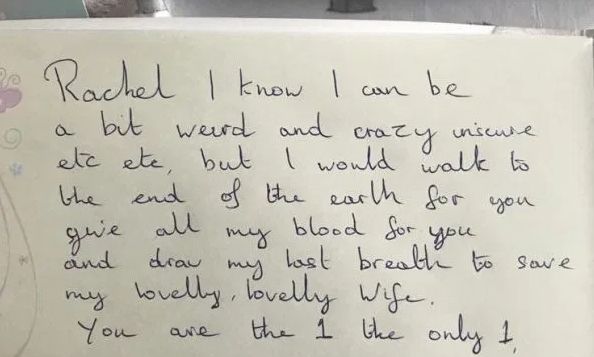 Rachel I know I can be
a bit weird and crazy unscure
etc etc, but I would walk to
the end of the earth for you
give all my blood for you
and draw my last breath to save
my lovelly, lovelly Wife.
You are the 1 the only 1.